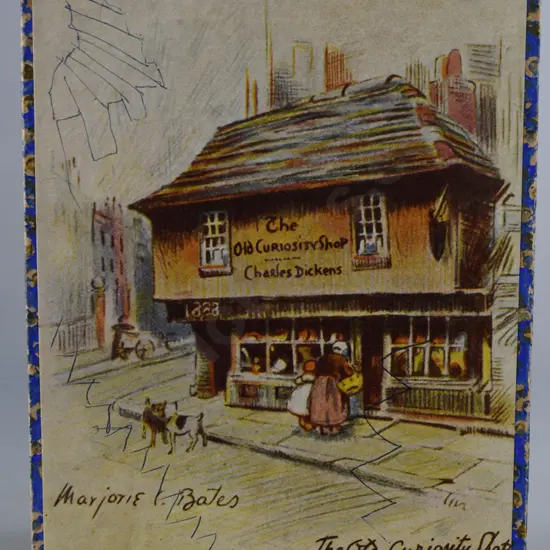 The
Old Curiosity Shop
Charles Dickens
Marjorie C. Bates
The Old Curiosity Shop